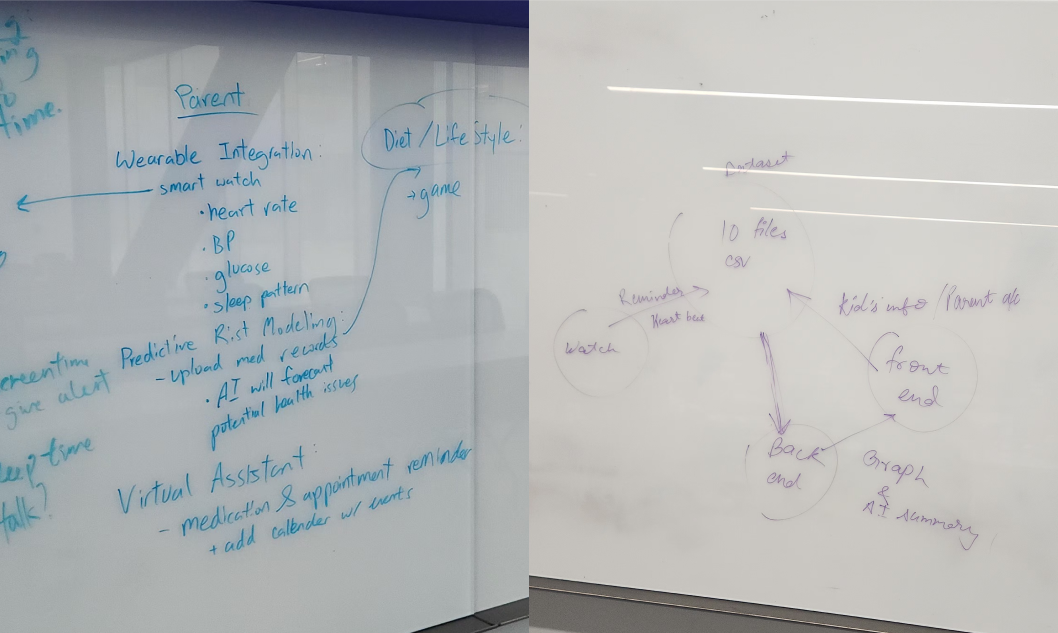 time.
Parent
Wearable Integration:
smart watch
• heart rate
• BP
• glucose
• sleep pattern
Predictive Rist Modeling:
- upload med records
• AI will forecast
potential health issues
Virtual Assistant:
- medication & appointment reminder
+ add callender w/ events
Diet / Life Style:
→ game
give alert
time
talk?
Dataset
10 files
csv
Reminder
Heart beat
Watch
Kid's info / Parent
front
end
Back
end
Graph
&
AI summary